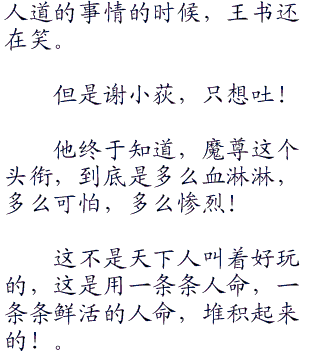 人道的事情的时候，王书还
在笑。
但是谢小荻，只想吐！
他终于知道，魔尊这个
头衔，到底是多么血淋淋，
多么可怕，多么惨烈！
这不是天下人叫着好玩
的，这是用一条条人命，一
条条鲜活的人命，堆积起来
的！。